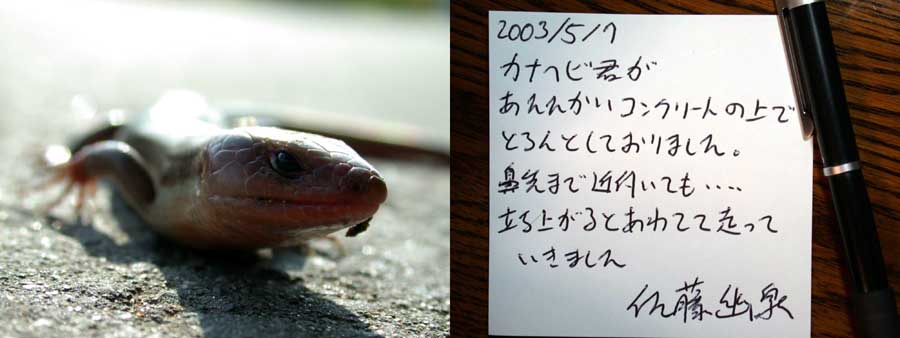 2003/5/7
カナヘビ君が
あんんかいコンクリートの上で
とろんとしておりました。
鼻先まで近付いても・・・・
立ち上がるとあわてて走って
いきました
佐藤